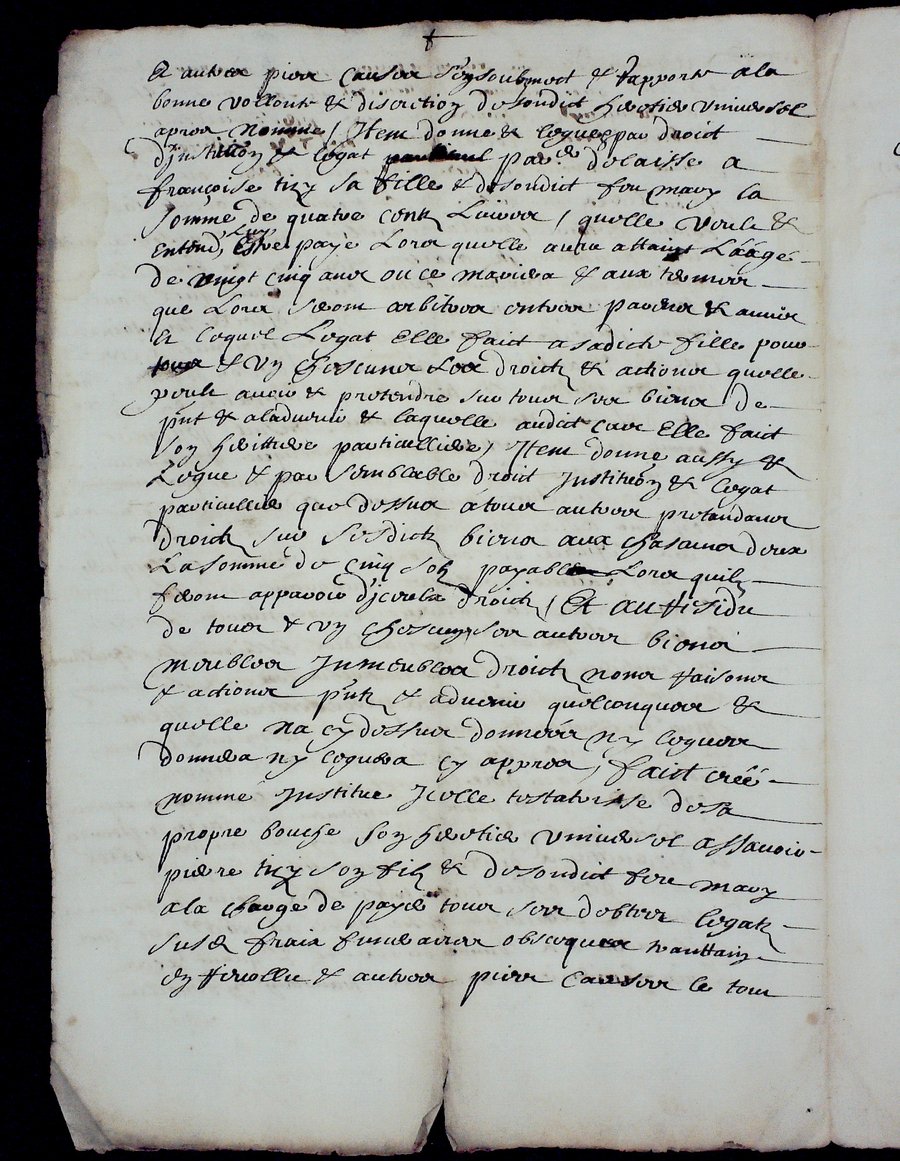 Et autres pies causes s'en soubmect & rapporte a la
bonne vollonte & discretion de sondict heritier universel
apres nomme / Item donne & legue par droict
d'institution & legat par elle delaisse a
françoise tizy sa fille & de sondict feu mary la
somme de quatre centz Livres / quelle veult &
entend, Luy Estre payé Lors quelle aura attaint L'aage
de vingt cinq ans ou ce mariera & aux termes
que Lors seront arbitres entres parens & amis
Et lequel Legat Elle faict a sadicte fille pour
tous & un chescuns Les droictz & actions quelle
peult avoir & pretendre sur tous ses biens de
pnt & a ladvenir & laquelle audict cas Elle faict
son heritiere particulliere / Item donne aussy &
Legue & par semblable droict Institution & legat
particullier que dessus a tous autres pretendans
droictz sur sesdictz biens aux chascuns d'eux
La somme de cinq solz payable Lors quilz
feront apparoir d'iceulx droictz / Et au Residu
de tous & un chescungs ses autres biens
meubles Inmeubles droictz noms raisons
& actions pntz & advenir quelconques &
quelle na cy dessus donnés ny legues
donnera ny leguera cy apres, faict créé
nomme Institue Icelle testatrisse de sa
propre bouche son heritier universel assavoir
pierre tizy son filz & de sondict feu mary
a la charge de payer tous ses debtes legatz
susd frais funeraires obseques
& autres pies causes le tout